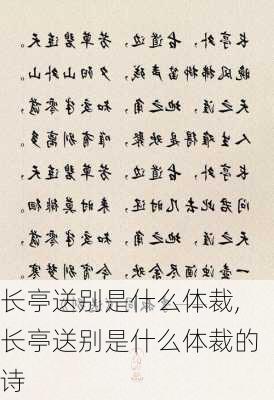 长亭外，古道边，芳草碧连天。
晚风拂柳笛声残，夕阳山外山。
天之涯，地之角，知交半零落。
人生难得是欢聚，唯有别离多。
长亭外，古道边，芳草碧连天。
问君此去几时还，来时莫徘徊。
天之涯，地之角，知交半零落。
一壶浊酒尽余欢，今宵别梦寒。
长亭送别是什么体裁,
长亭送别是什么体裁的
诗